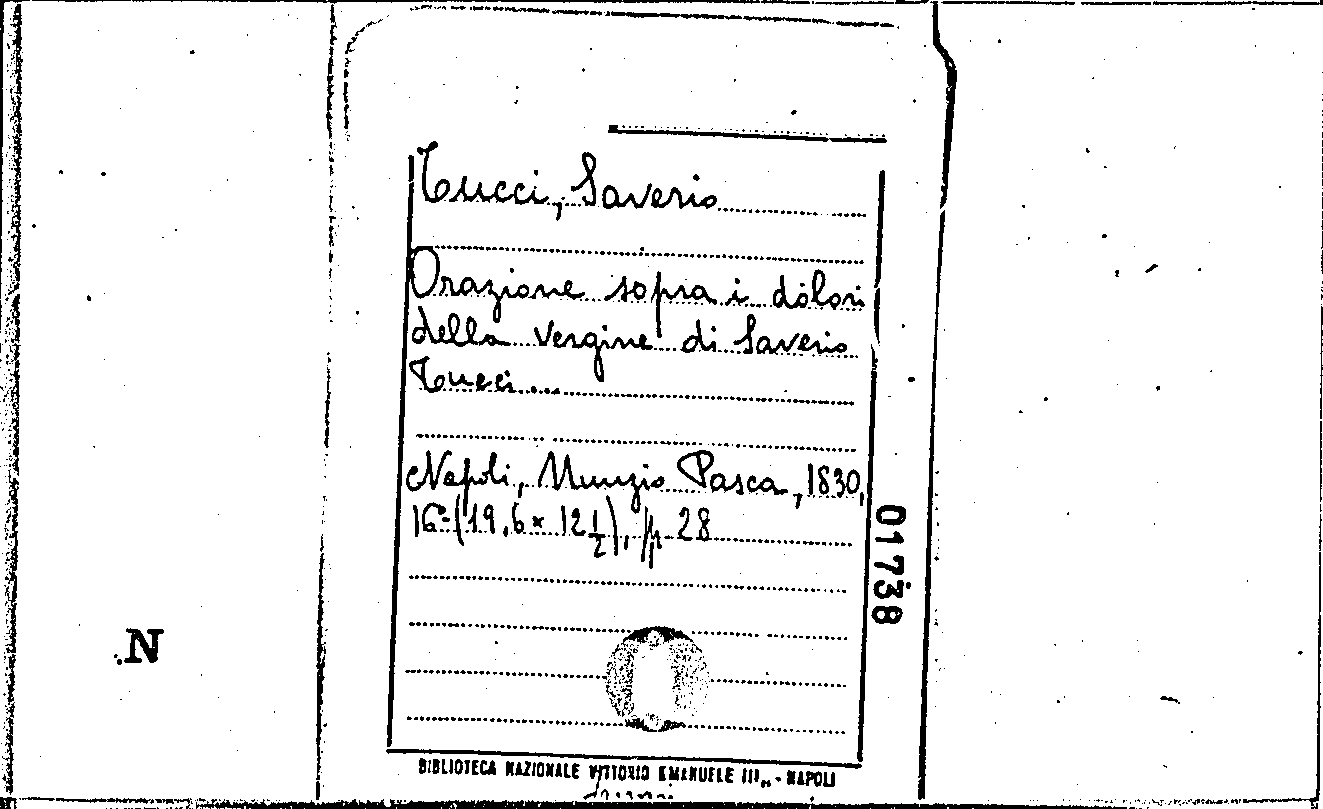 Tucci, Saverio
Orazione sopra i dolori
della Vergine di Saverio
Tucci...
Napoli, Munzio Pasca, 1830,
16°-(19,6 x 12 1/2), pp 28
01738
N
BIBLIOTECA NAZIONALE VITTORIO EMANUELE III„ - NAPOLI